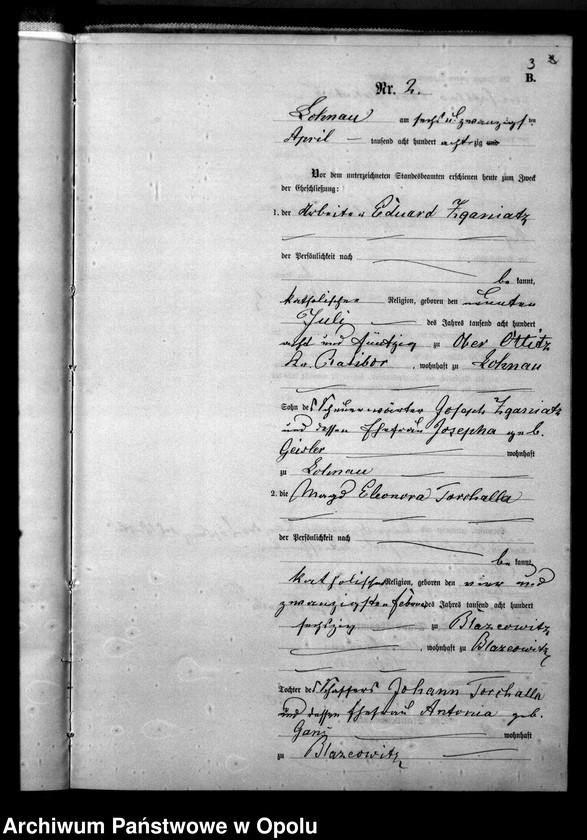 3
B.
Nr. 2.
Lohnau am sechs u. zwanzigsten
April tausend acht hundert achtzig und
Vor dem unterzeichneten Standesbeamten erschienen heute zum Zweck
der Eheschließung:
1. der Arbeiter Eduard Zganiatz
der Persönlichkeit nach
be kannt,
katholischer Religion, geboren den neunten
Juli des Jahres tausend acht hundert
acht und fünfzig zu Ober Ottitz
Kr. Ratibor, wohnhaft zu Lohnau
Sohn des Scheuerwärter Joseph Zganiatz
und dessen Ehefrau Josepha geb.
Geisler wohnhaft
zu Lohnau
2. die Magd Eleonora Torchalla
der Persönlichkeit nach
be kannt,
katholischer Religion, geboren den vier und
zwanzigsten Februar des Jahres tausend acht hundert
sechszig zu Blazeowitz
, wohnhaft zu Blazeowitz
Tochter des Schaffers Johann Torchalla
und dessen Ehefrau Antonia geb.
wohnhaft
zu Blazeowitz
Archiwum Państwowe w Opolu